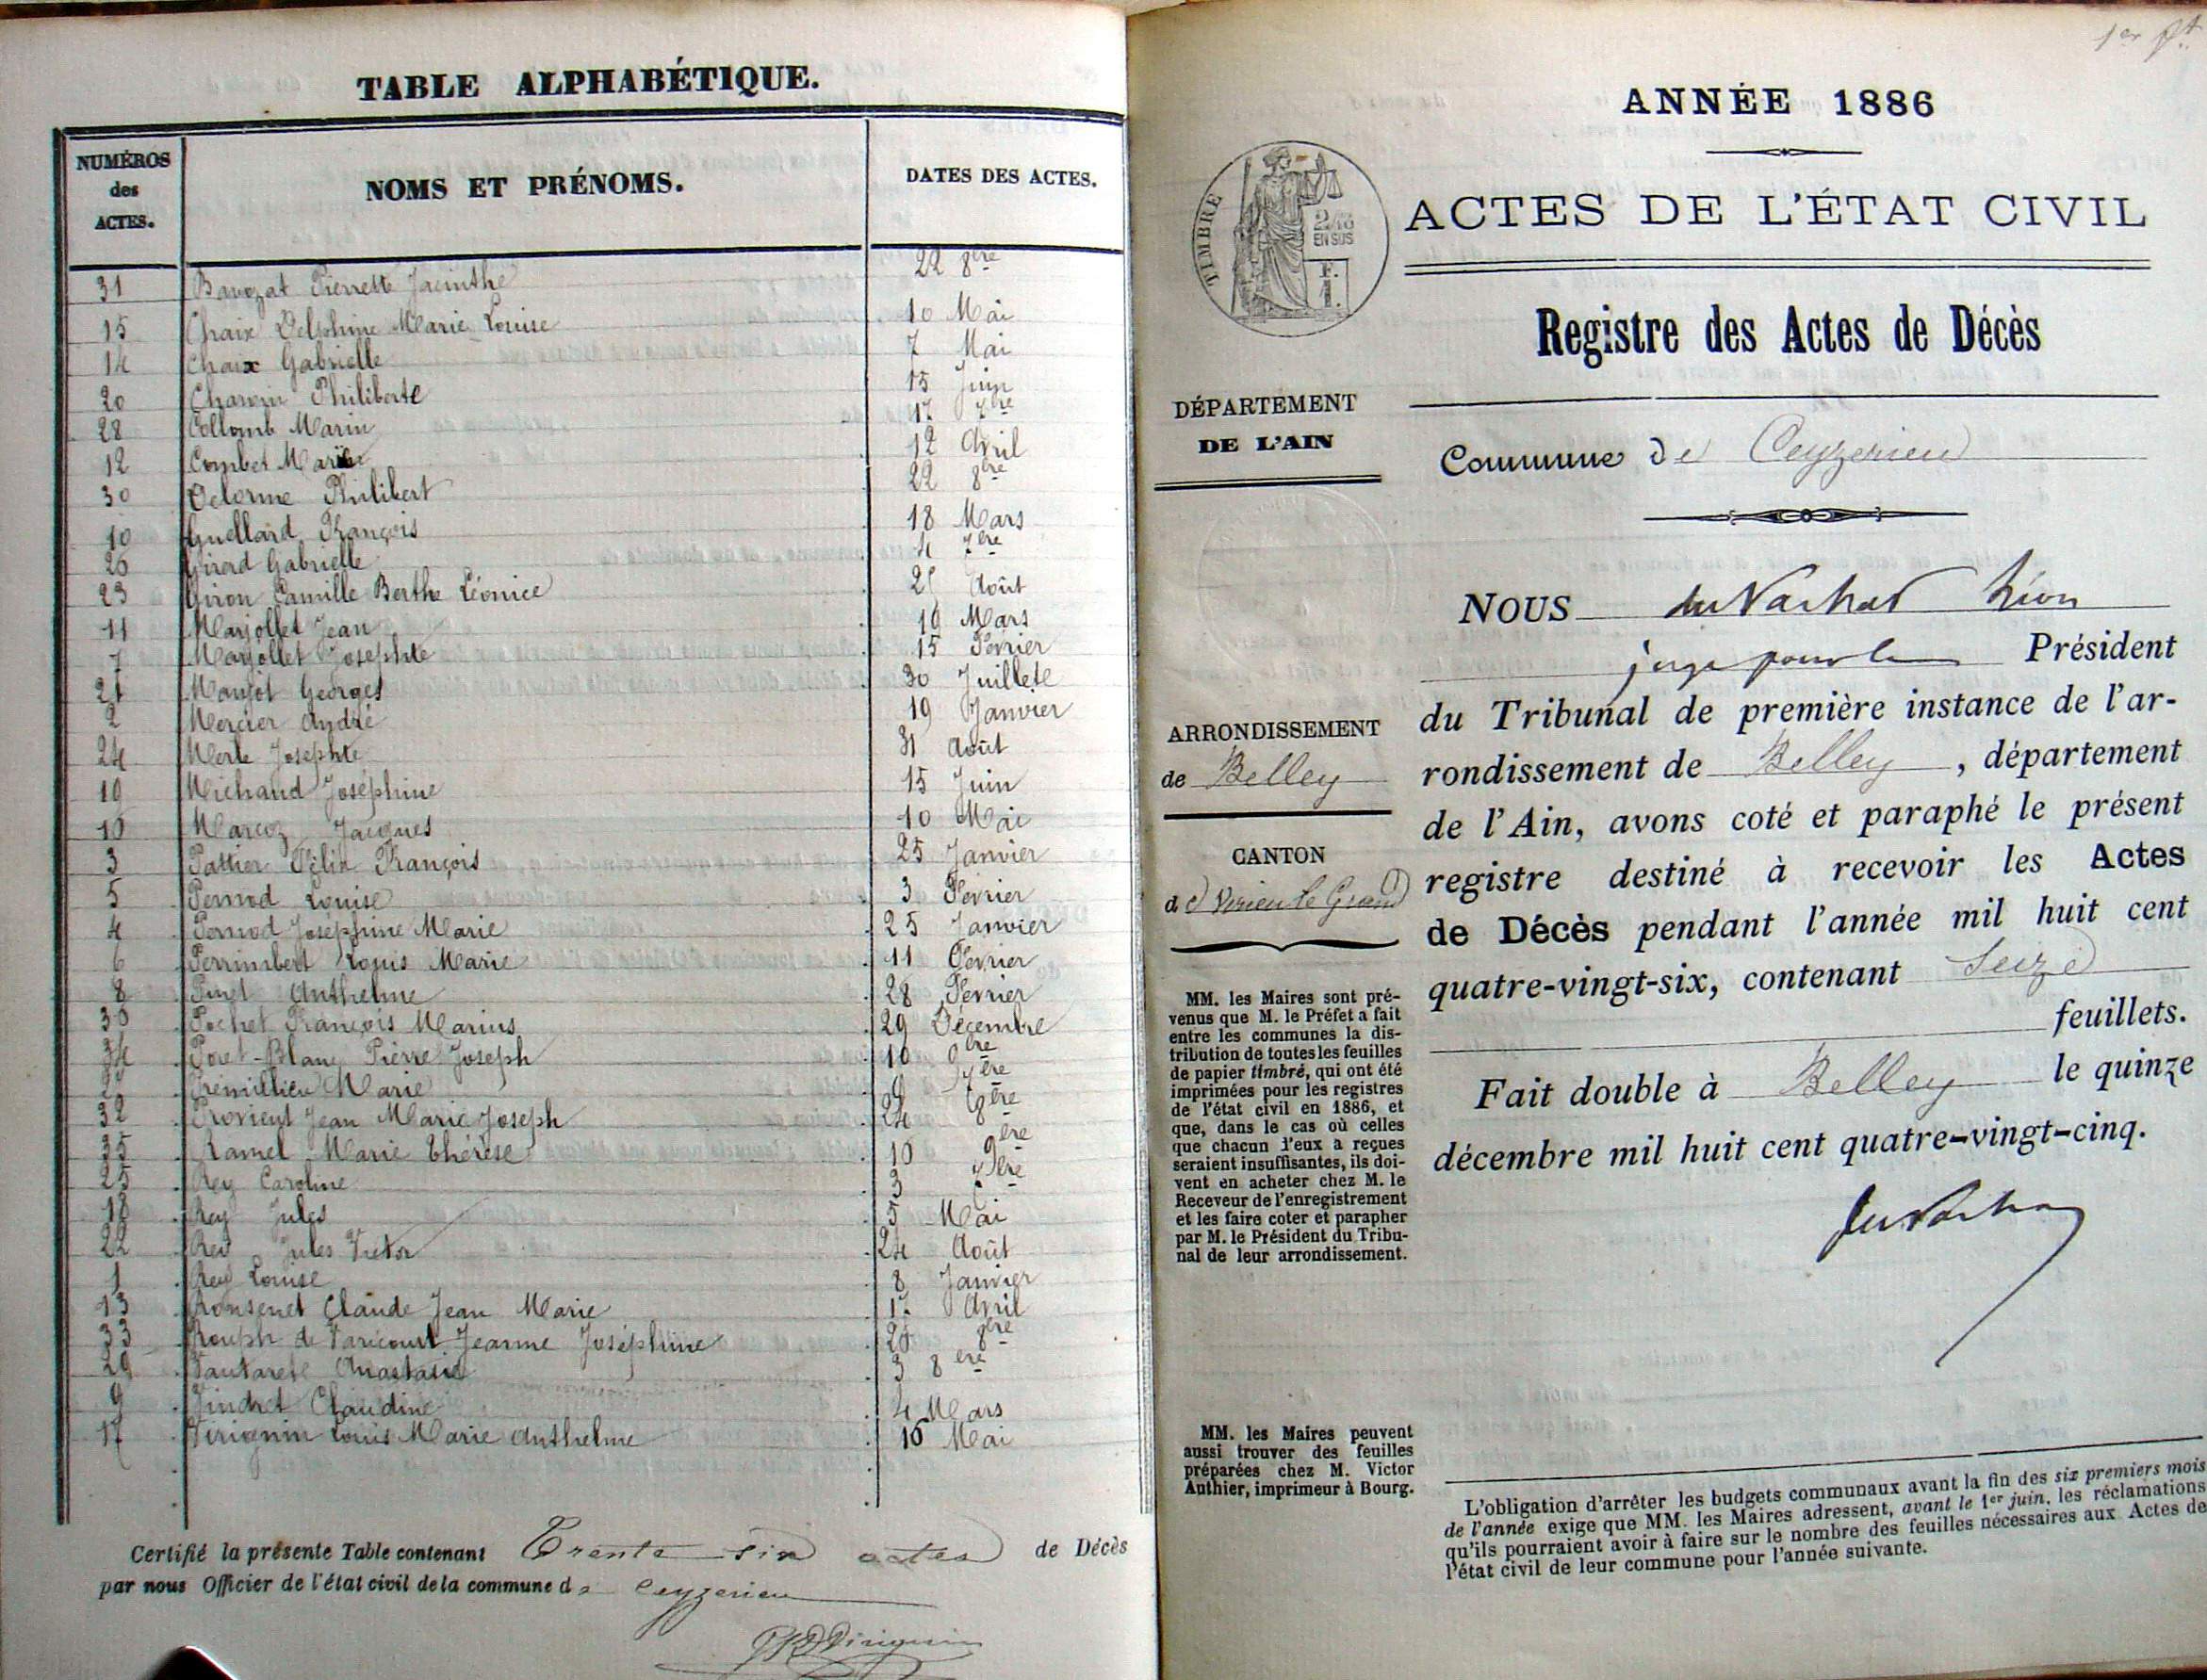 TABLE ALPHABÉTIQUE.
NUMÉROS des ACTES. NOMS ET PRÉNOMS. DATES DES ACTES.
31 Pierrette Jacinthe 22 8bre
15 Chaix Delphine Marie Louise 10 Mai
14 Chaix Gabrielle 7 Mai
20 Philiberte 15 Juin
28 Collomb Marin 17 7bre
12 Combet 12 Avril
30 Delorme Philibert 22 8bre
10 Guellard François 18 Mars
26 Girod Gabrielle 4 7bre
23 Giron Camille Berthe Léonice 25 Août
11 Marjollet Jean 19 Mars
7 Marjollet Josephte 15 Février
21 Georges 30 Juillet
2 Mercier André 19 Janvier
24 Merle Josephte 31 Août
19 Michaud Joséphine 15 Juin
Marcoz Jacques 10 Mai
3 Félix François 25 Janvier
5 Pernod Louise 3 Février
4 Pernod Joséphine Marie 25 Janvier
6 Perrimbert Louis Marie 11 Février
8 Anthelme 28 Février
36 Pochet François Marius 29 Décembre
34 Poret-Blanc Pierre Joseph 10 9bre
Prémillieu Marie 7bre
32 Jean Marie Joseph 24 8bre
35 Ramel Marie Thérèse 10 9bre
25 Rey Caroline 3 7bre
18 Rey Jules 5 Mai
22 Rey Jules Victor 24 Août
1 Rey Louise 8 Janvier
13 Claude Jean Marie Avril
33 Rouph de Varicourt Jeanne Joséphine 8bre
29 Anastasie 3 8bre
9 Claudine 4 Mars
17 Virignin Louis Marie Anthelme 16 Mai
Certifié la présente Table contenant Trente six actes de Décès
par nous Officier de l'état civil de la commune de Ceyzerieu
Virignin
1er
ANNÉE 1886
TIMBRE
2/10 EN SUS
F. 1.
ACTES DE L'ÉTAT CIVIL
Registre des Actes de Décès
DÉPARTEMENT
DE L'AIN
Commune de Ceyzerieu
NOUS Léon
juge pour le Président
du Tribunal de première instance de l'ar-
rondissement de Belley, département
de l'Ain, avons coté et paraphé le présent
registre destiné à recevoir les Actes
de Décès pendant l'année mil huit cent
quatre-vingt-six, contenant Seize
feuillets.
Fait double à Belley le quinze
décembre mil huit cent quatre-vingt-cinq.
ARRONDISSEMENT
de Belley
CANTON
de Virieu le Grand
MM. les Maires sont pré-
venus que M. le Préfet a fait
entre les communes la dis-
tribution de toutes les feuilles
de papier timbré, qui ont été
imprimées pour les registres
de l'état civil en 1886, et
que, dans le cas où celles
que chacun d'eux a reçues
seraient insuffisantes, ils doi-
vent en acheter chez M. le
Receveur de l'enregistrement
et les faire coter et parapher
par M. le Président du Tribu-
nal de leur arrondissement.
MM. les Maires peuvent
aussi trouver des feuilles
préparées chez M. Victor
Authier, imprimeur à Bourg.
L'obligation d'arrêter les budgets communaux avant la fin des six premiers mois
de l'année exige que MM. les Maires adressent, avant le 1er juin, les réclamations
qu'ils pourraient avoir à faire sur le nombre des feuilles nécessaires aux Actes de
l'état civil de leur commune pour l'année suivante.